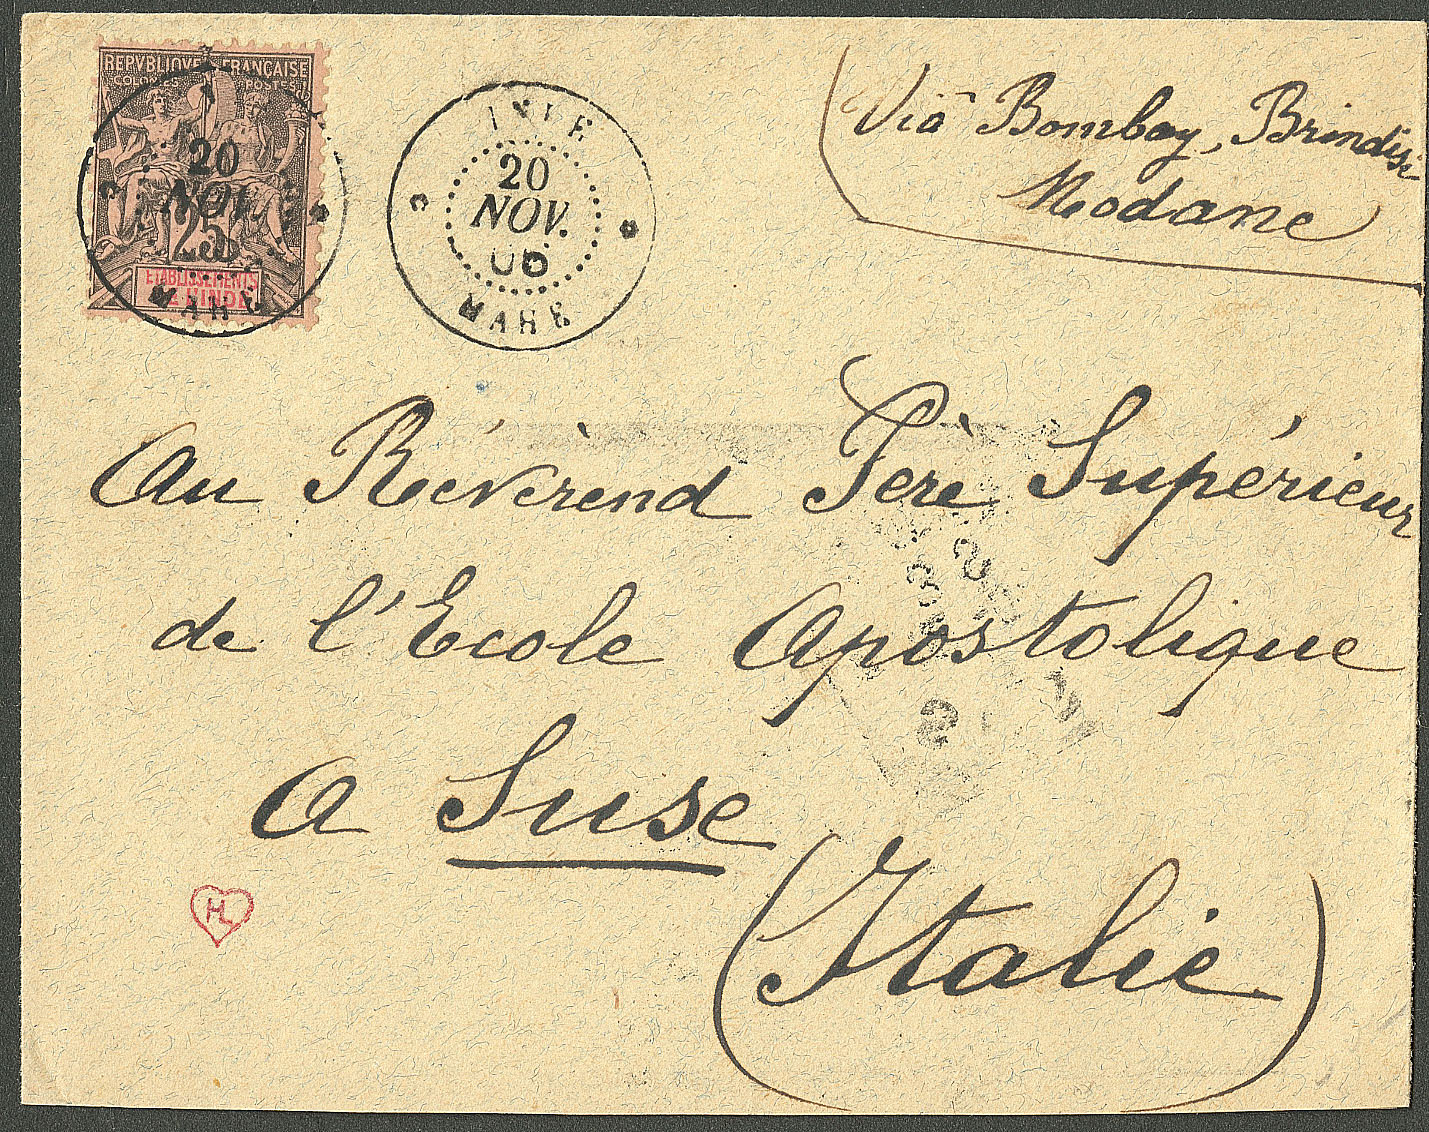 REPVBLIQVE FRANÇAISE
COLONIES POSTES
20
NOV.
25
ETABLISSEMENTS
DE L'INDE
MAHE
INDE
20
NOV.
06
MAHE
Viâ Bombay, Brindisi
Modane
Au Révèrend Père Supérieur
de l'Ecole Apostolique
a Suse
(Italie)
HL